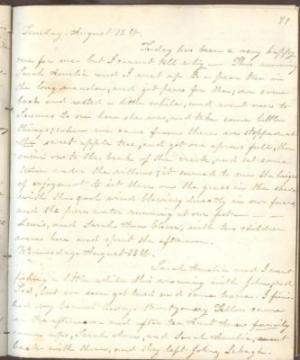 Tuesday. August 12th.
Today has been a very happy
one for me but I cannot tell why — This morning
Sarah Amelia and I went up to a pear tree in
the long meadow, and got pears for Ma; we came
back and rested a little while, and went over to
to see how she was, and take some little
things; when we came home there we stopped at
the sweet apple tree, and got one apron full, then
came on to the bank of the creek, and sat some
time under the willows; it seemed to me the height
of enjoyment to sit there on the grass in the shade
with the cool wind blowing directly in our faces
and the pure water running at our feet — — —
Lewis, and Sarah, with two children
were here and spent the afternoon.
Wednesday August 13th.
Sarah Amelia and I went
fishing a little while this morning with John, and
but we soon got tired and came home. I
had my Montgomery
in the afternoon and after tea Aunt family
Sarah, and Sarah Amelia, went
back with them, and they left John,